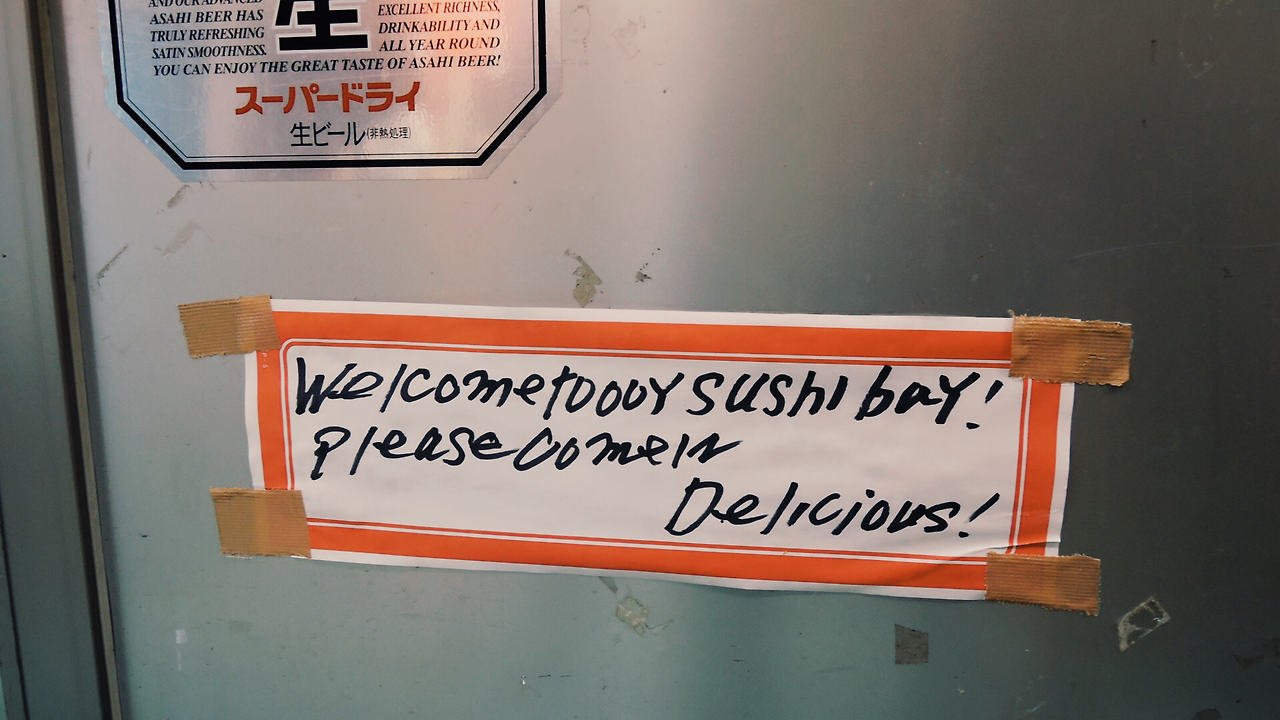 AND OUR ADVANCED
ASAHI BEER HAS
TRULY REFRESHING
SATIN SMOOTHNESS.
生
EXCELLENT RICHNESS,
DRINKABILITY AND
ALL YEAR ROUND
YOU CAN ENJOY THE GREAT TASTE OF ASAHI BEER!
スーパードライ
生ビール(非熱処理)
Welcome to oour sushi bay!
Please come in
Delicious!